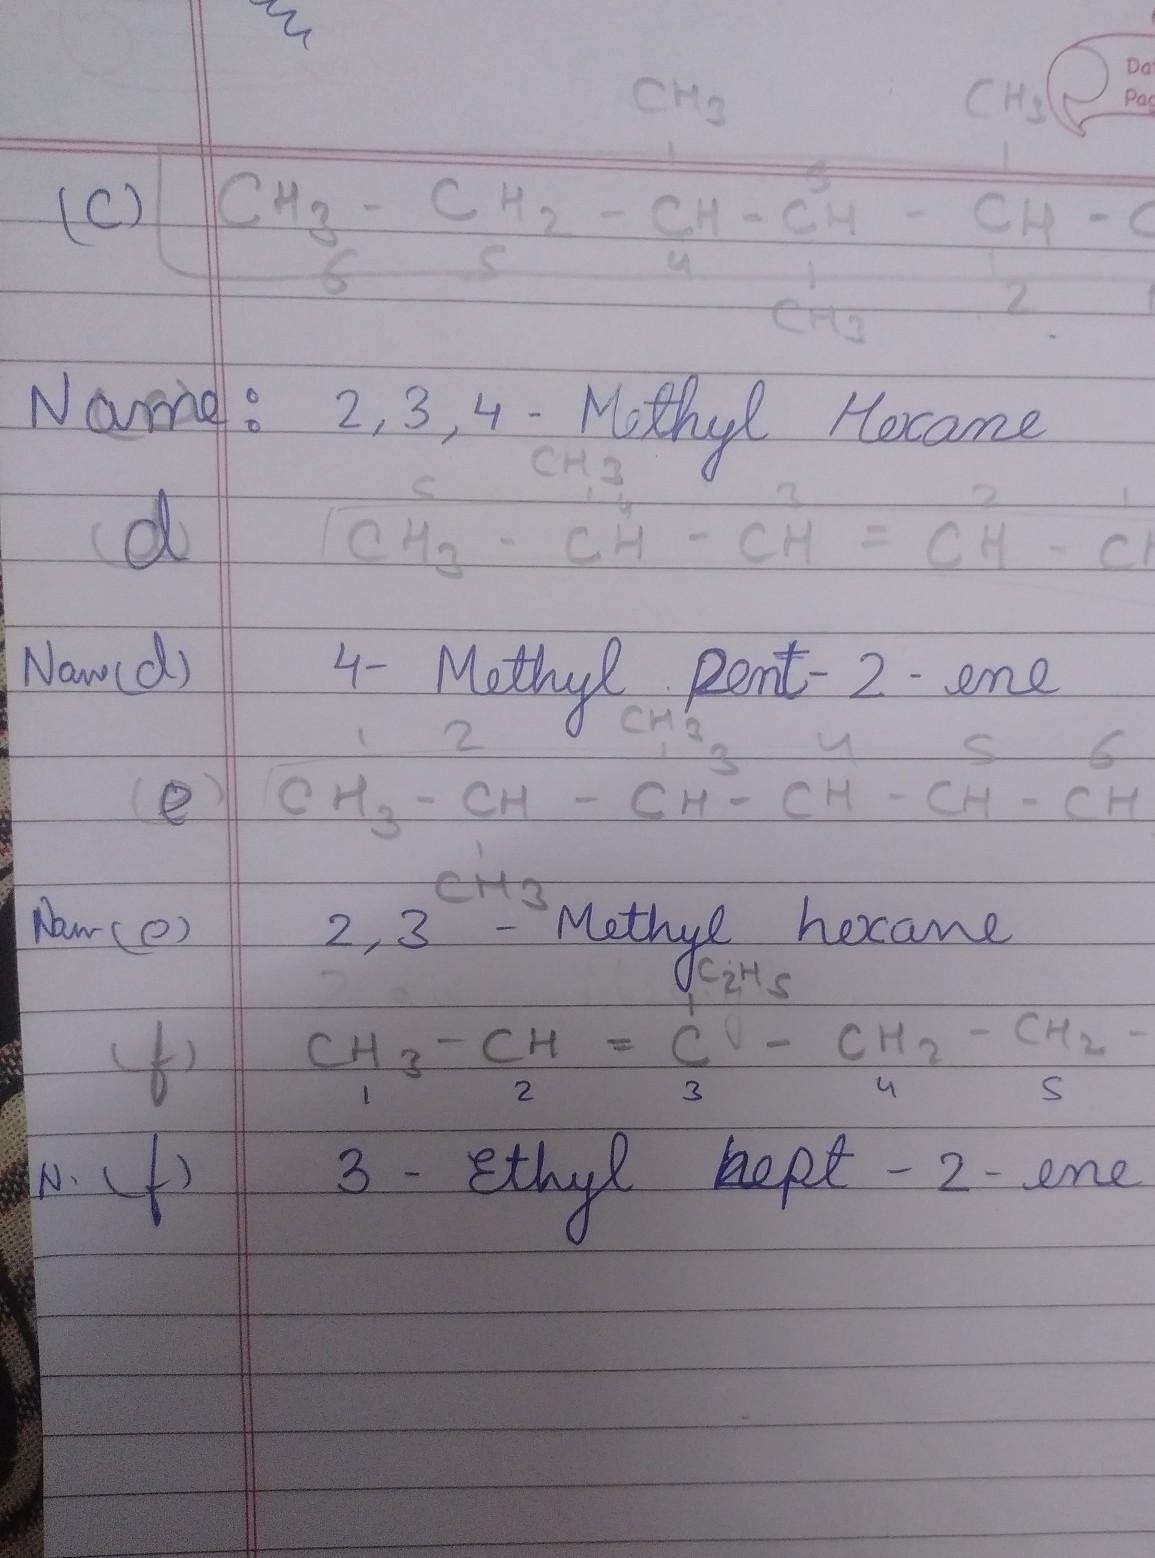 Da
Pag
CH3 CH3
(C) CH3 - CH2 - CH - CH - CH - C
6 5 4 3 2 1
CH3
Name: 2,3,4 - Methyl Hexane
CH3
5 4 3 2 1
(d) CH3 - CH - CH = CH - CH
Nam(d) 4- Methyl pent-2-ene
CH3
1 2 3 4 5 6
(e) CH3 - CH - CH - CH - CH - CH
CH3
Nam(e) 2,3 - Methyl hexane
C2H5
(f) CH3 - CH = C - CH2 - CH2 -
1 2 3 4 5
N. (f) 3 - Ethyl hept - 2 - ene